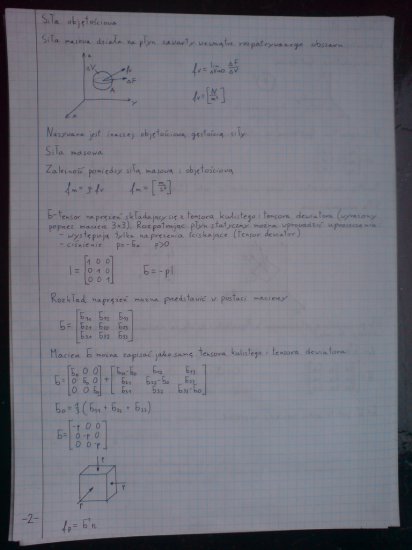 Siła objętościowa
Siła masowa działa na płyn zawarty wewnątrz rozpatrywanego obszaru
z
ΔV
fv
ΔF
A
y
x
fv = lim ΔV→0 ΔF/ΔV
fv = [N/m³]
Nazywana jest inaczej objętościową gęstością siły
Siła masowa
Zależność pomiędzy siłą masową i objętościową
fm = ρ·fv fm = [m/s²]
б-tensor naprężeń składający się z tensora kulistego i tensora dewiatora (wyrażony
poprzez macierz 3×3). Rozpatrując płyn statyczny można wprowadzić uproszczenia:
- występują tylko naprężenia ściskające (tensor dewiator)
- ciśnienie p=-б₀ p>0
I = [1 0 0
0 1 0
0 0 1] б = -pI
Rozkład naprężeń można przedstawić w postaci macierzy
б = [б₁₁ б₁₂ б₁₃
б₂₁ б₂₂ б₂₃
б₃₁ б₃₂ б₃₃]
Macierz б można zapisać jako sumę tensora kulistego i tensora dewiatora
б = [б₀ 0 0
0 б₀ 0
0 0 б₀] + [б₁₁-б₀ б₁₂ б₁₃
б₂₁ б₂₂-б₀ б₂₃
б₃₁ б₃₂ б₃₃-б₀]
б₀ = 1/3 (б₁₁ + б₂₂ + б₃₃)
б = [-p 0 0
0 -p 0
0 0 -p]
P
P
P
-2-